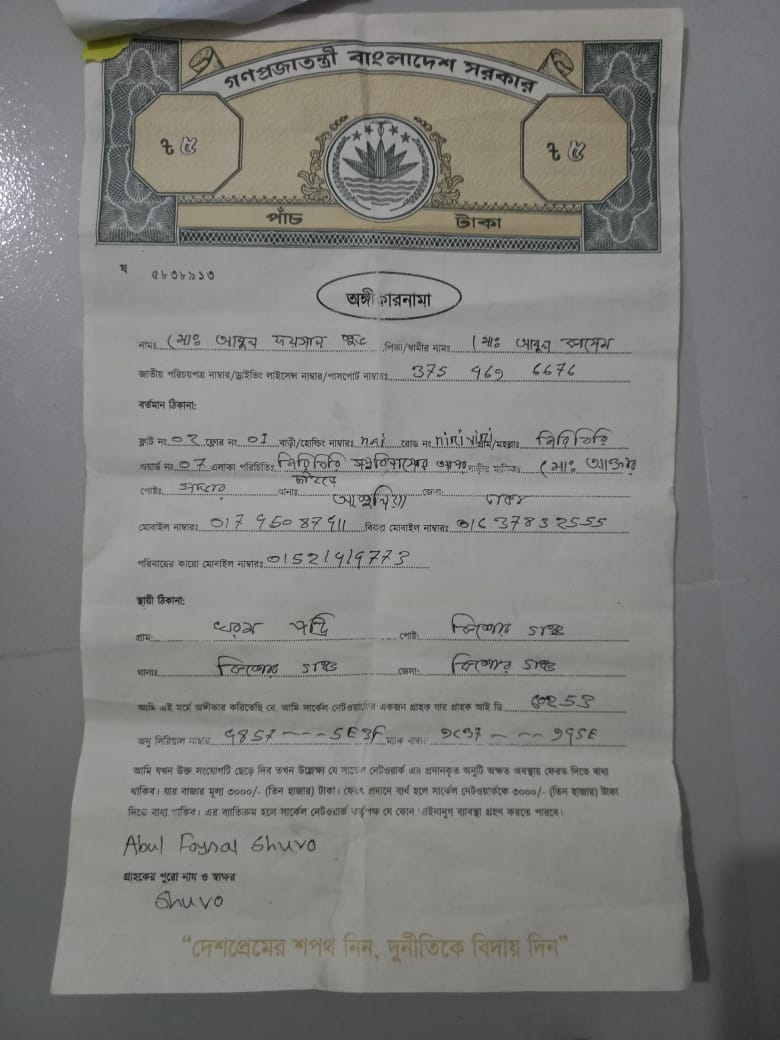 গণপ্রজাতন্ত্রী বাংলাদেশ সরকার
৳ ৫ ৳ ৫
পাঁচ টাকা
ষ ৫৮৩৮৯১৩
অঙ্গীকারনামা
নামঃ মোঃ আবুল ফয়সাল শুভ পিতা/স্বামীর নামঃ মোঃ আবুল কাসেম
জাতীয় পরিচয়পত্র নাম্বার/ড্রাইভিং লাইসেন্স নাম্বার/পাসপোর্ট নাম্বারঃ 375 969 6676
বর্তমান ঠিকানা:
ফ্লাট নং 02 ফ্লোর নং 01 বাড়ী/হোল্ডিং নাম্বারঃ nai রোড নং niriviri গ্রাম/মহল্লাঃ নিরিবিরি
ওয়ার্ড নং 07 এলাকা পরিচিতিঃ নিরিবিরি বাড়ীর মালিকঃ মোঃ
পোষ্টঃ থানাঃ আশুলিয়া জেলাঃ ঢাকা
মোবাইল নাম্বারঃ 017 950 87911 বিকল্প মোবাইল নাম্বারঃ 016 37832555
পরিবারের কারো মোবাইল নাম্বারঃ 01521919773
স্থায়ী ঠিকানা:
গ্রাম: পোষ্ট: কিশোর গঞ্জ
থানাঃ কিশোর গঞ্জ জেলা: কিশোর গঞ্জ
আমি এই মর্মে অঙ্গীকার করিতেছি যে, আমি সার্কেল নেটওয়ার্কের একজন গ্রাহক যার গ্রাহক আই ডি
অনু সিরিয়াল নাম্বার 4857 --- 5E3F ম্যাক নাম্বাঃ
আমি যখন উক্ত সংযোগটি ছেড়ে দিব তখন উল্লেক্ষ্য যে সার্কেল নেটওয়ার্ক এর প্রদানকৃত অনুটি অক্ষত অবস্থায় ফেরত দিতে বাধ্য
থাকিব। যার বাজার মূল্য ৩০০০/- (তিন হাজার) টাকা। ফেরৎ প্রদানে ব্যর্থ হলে সার্কেল নেটওয়ার্ককে ৩০০০/- (তিন হাজার) টাকা
দিতে বাধ্য থাকিব। এর ব্যতিক্রম হলে সার্কেল নেটওয়ার্ক কর্তৃপক্ষ যে কোন আইনানুগ ব্যাবস্থা গ্রহণ করতে পারবে।
Abul Faysal Shuvo
গ্রাহকের পুরো নাম ও স্বাক্ষর
Shuvo
“দেশপ্রেমের শপথ নিন, দুর্নীতিকে বিদায় দিন”